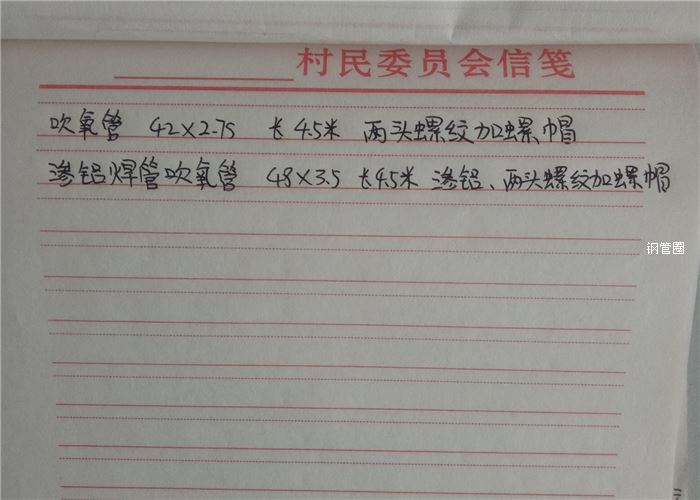 村民委员会信笺
吹氧管 42×2.75 长4.5米 两头螺纹加螺帽
渗铝焊管吹氧管 48×3.5 长4.5米 渗铝、两头螺纹加螺帽
钢管圈